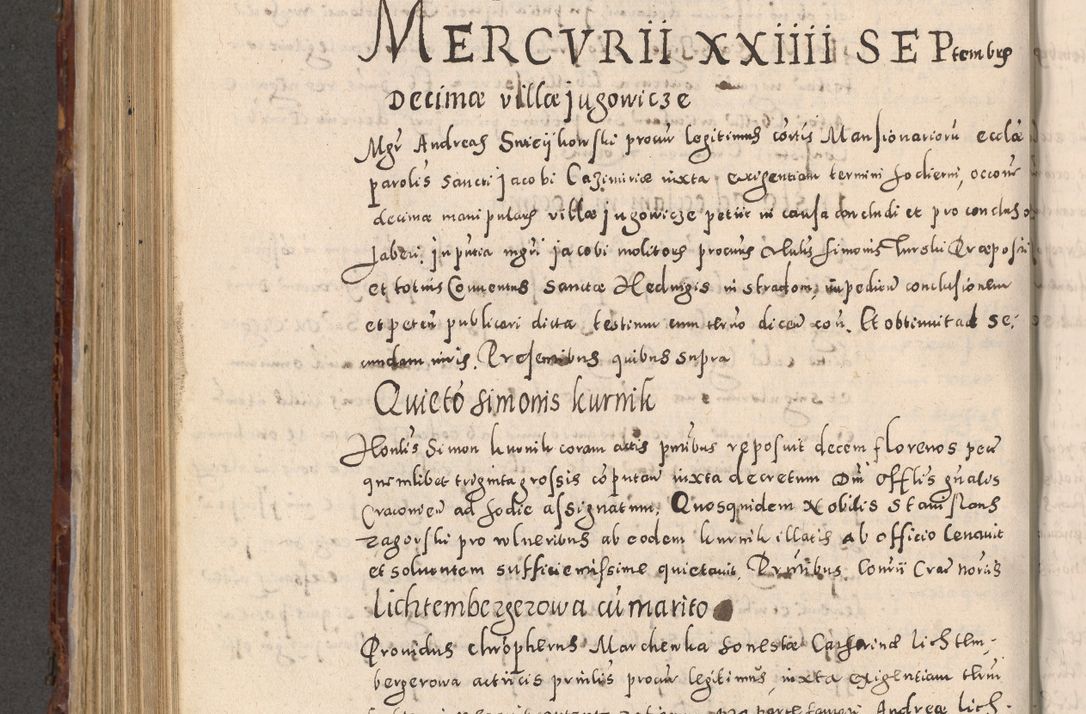 MERCVRII XXIIII SEPtembrs
Decimæ villæ jugowicze
Mgr Andreas Swieykowski procur legitimus cortis Mansionarioru eccla
parolis Sancti Jacobi Cazimiriæ iuxta exigentiam termini hodierni, occone
decimæ manipularis villæ jugowicze petiit in causa concludi et pro concluso
haberi. In putia mgri jacobi molitoris procuris Simonis Præposi
et totius Conuentus Sanctæ Hedwigis in stradom, impedien conclusionem
et peten publicari dicta testium cum dicen con. Et obtinuit ad se,
cundam iuris. Presentibus quibus supra
Quieto Simonis kurnik
Honlis Simon kurnik coram actis pntibus reposuit decem florenos pecu
quemlibet triginta grossis coputan iuxta decretum Dni Offlis gnalis
Cracouien ad hodie assignatum. Quosquidem Nobilis Stanislaus
zagorski pro vulneribus ab eodem kurnik illatis ab officio leuauit
et solutum sufficientissime quietauit. Pntibus Conrii Crac noriis
Lichtembergerowa cu marito
Prouidus chrophorus Marchewka honestæ Catharinæ Lichtem,
bergerowa actricis prinlis procur legitimus, iuxta exigentiam thrni
Andreæ Lich,